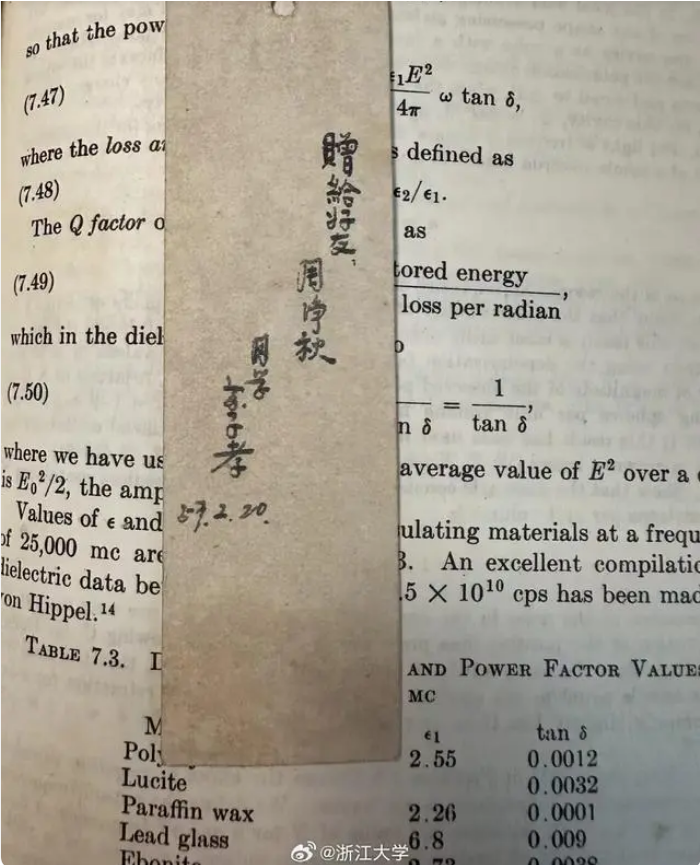 so that the pow
(7.47)
ϵ₁E²
4π
ω tan δ,
where the loss a
s defined as
(7.48)
ϵ₂/ϵ₁.
The Q factor o
as
(7.49)
tored energy
loss per radian
,
which in the diel
o
(7.50)
n δ
=
1
tan δ
,
where we have us
average value of E² over a
is E₀²/2, the amp
Values of ϵ and
ulating materials at a frequ
of 25,000 mc are
3. An excellent compilatio
dielectric data be
.5 × 10¹⁰ cps has been mad
von Hippel.¹⁴
TABLE 7.3.
AND POWER FACTOR VALUES
MC
M
ϵ₁
tan δ
Poly
2.55
0.0012
Lucite
0.0032
Paraffin wax
2.26
0.0001
Lead glass
6.8
0.009
Ebonite
2.72
0.0038
贈給好友
周净秋
同学
孝
57.2.20.
@浙江大学